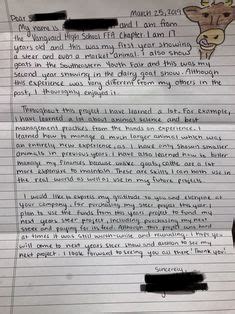 March 25, 2019
Dear
My name is and I am from
the Vanguard High School FFA Chapter. I am 17
years old and this was my first year showing
a steer and even a market animal. I also show
goats in the Southeastern Youth Fair and this was
my second year showing in the dairy goat show. Although
this experience was very different from my others in the
past, I thoroughly enjoyed it.
Throughout this project I have learned a lot. For example,
I have learned a lot about animal science and best
management practices from the hands on experience. I
learned how to manage a much larger animal which was
an entirely new experience, as I have only shown smaller
animals in previous years. I have also learned how to better
manage my finances because unlike goats, cattle are a lot
more expensive to maintain. These are skills I can both use in
the real world as well as use in my future projects.
I would like to express my gratitude to you and everyone at
your company, for purchasing my steer project this year. I
plan to use the funds from this years project to fund my
next years steer project, including purchasing my next
steer and paying for its feed. Although this project was hard
at times it was still worth-while and rewarding. I hope you
will come to next years steer show and auction to see my
next project. I look forward to seeing you all there! Thank you!
Sincerely,